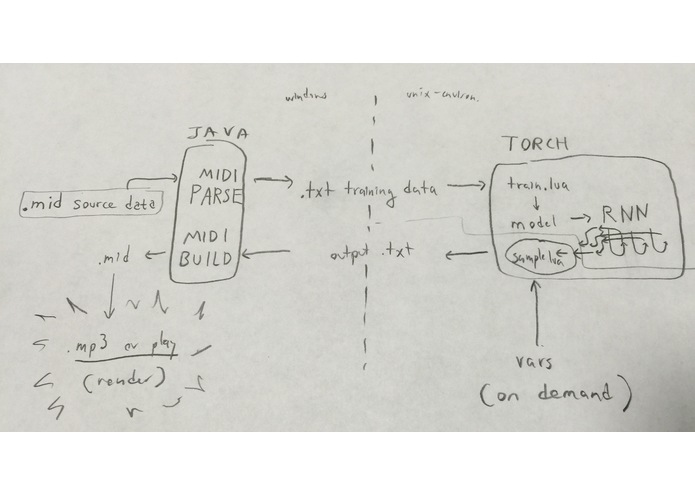 windows
unix-environ.
JAVA
TORCH
.mid source data
MIDI
PARSE
.txt training data
train.lua
model
RNN
MIDI
BUILD
.mid
output .txt
sample.lua
.mp3 or play
(render)
vars
(on demand)